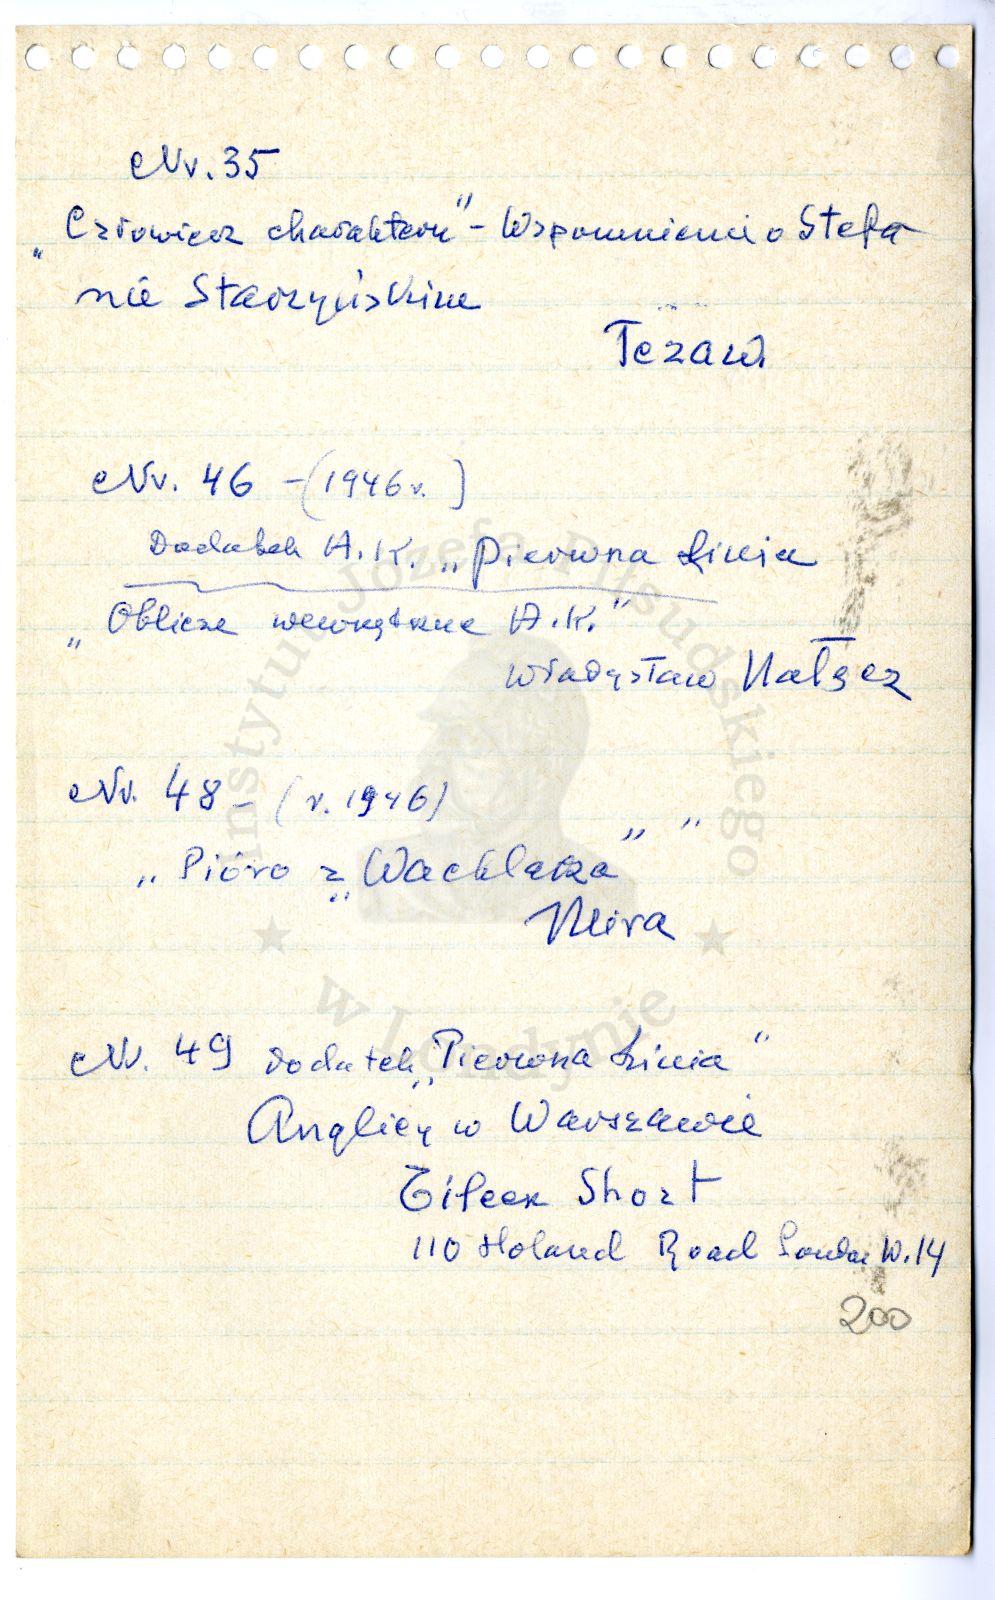 Nr. 35
„Człowiek charakteru" - Wspomnienie o Stefa
nie Starzyńskim
Nr. 46 - (1946 r.)
Dodatek A.K. „Pierwsza Linia
„Oblicze wewnętrzne A.K."
Władysław
Nr. 48 - (r. 1946)
„Pióro z „Wachlarza" "
Mira
Nr. 49 Dodatek „Pierwsza Linia"
Anglicy w Warszawie
Eileen Short
110 Holand Road London W.14
200
Instytut Józefa Piłsudskiego
w Londynie